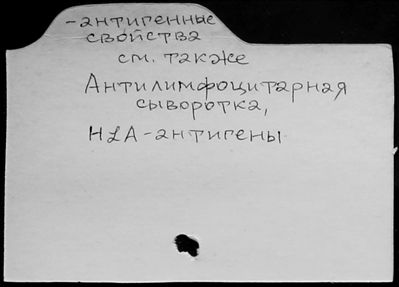 -антигенные
свойства
см. также
Антилимфоцитарная
сыворотка,
HLA-антигены